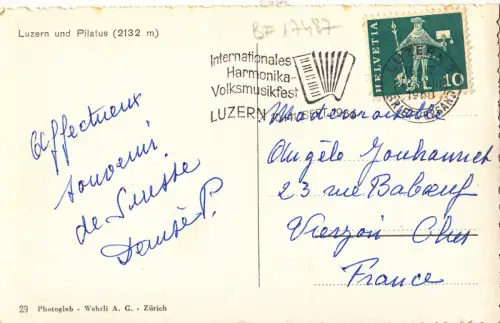 BF 17487
Luzern und Pilatus (2132 m)
Internationales
Harmonika-
Volksmusikfest
LUZERN
HELVETIA
10
Affectueux
souvenir
de Suisse
Denise P.
Mademoiselle
Angèle Jouhannet
23 rue Baboeuf
Vierzon Cher
France
29 Photogleb - Wehrli A. G. - Zürich